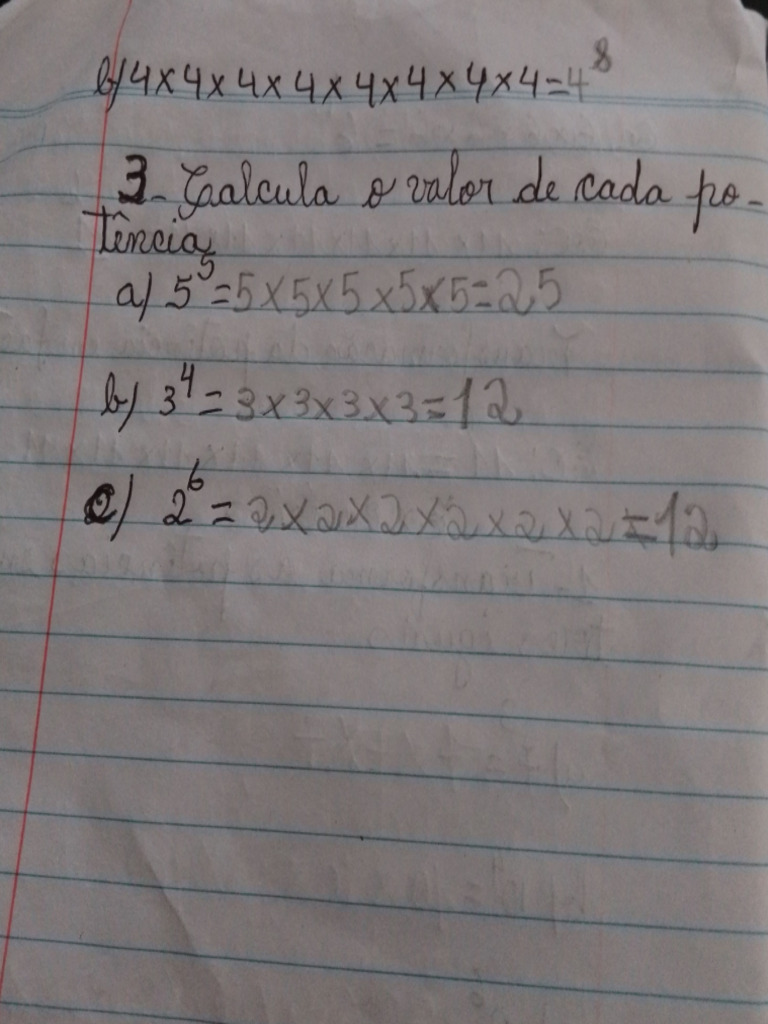 b) 4 × 4 × 4 × 4 × 4 × 4 × 4 × 4 = 4⁸
3 - Calcula o valor de cada po-
tência
a) 5⁵ = 5 × 5 × 5 × 5 × 5 = 25
b) 3⁴ = 3 × 3 × 3 × 3 = 12
c) 2⁶ = 2 × 2 × 2 × 2 × 2 × 2 = 12